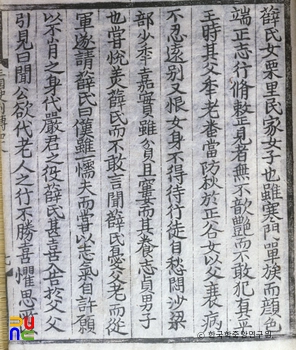 薛氏女栗里民家女子也雖寒門單族而顔色
端正志行脩整見者無不歆艶而不敢犯真平
王時其父年老番當防秋於正谷女以父衰病
不忍遠別又恨女身不得待行徒自愁悶沙梁
部少年嘉實雖貧且窶而其養志貞男子
也嘗悅美薛氏而不敢言聞薛氏憂父老而從
軍遂請薛氏曰僕雖一懦夫而嘗以志氣自許願
以不肖之身代嚴君之役薛氏甚喜入告於父父
引見曰聞公欲代老人之行不勝喜懼思
© 한국학중앙연구원